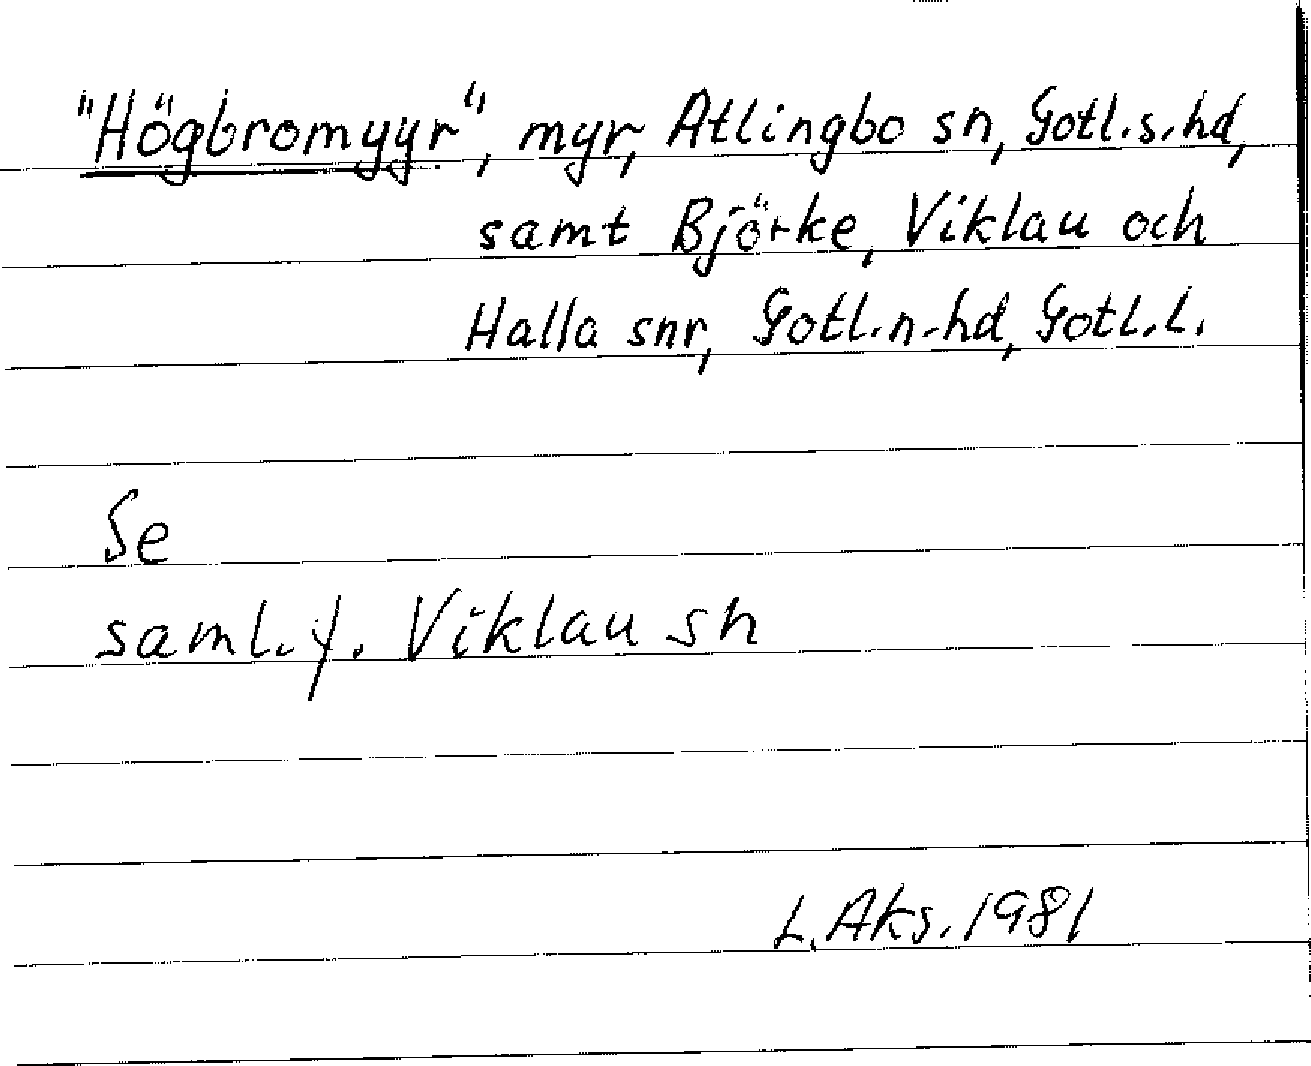 "Högbromyyr", myr, Atlingbo sn, Gotl.s.hd,
samt Björke, Viklau och
Halla snr, Gotl.n.hd, Gotl.l.
Se
saml.f. Viklau sn
L.Aks.1981